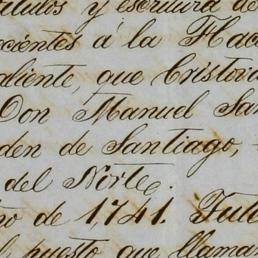 títulos y escritura de
ecientes á la Hac
diente, que Cristóv
Don Manuel San
rden de Santiago,
del Norte.
ño de 1,741. Tulo
l puesto que llama